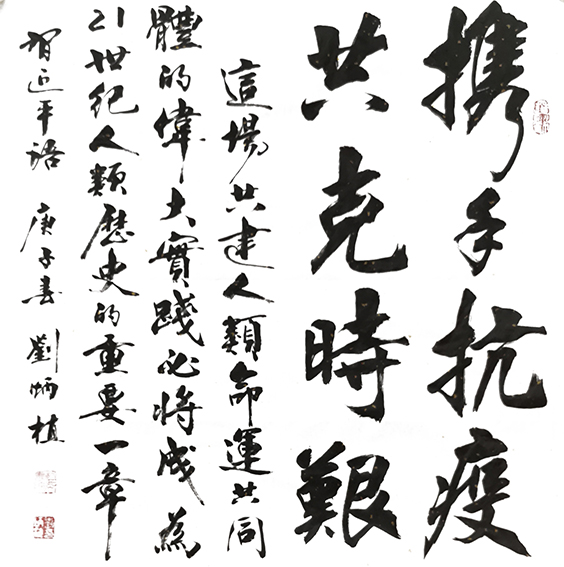 携手抗疫
共克時艱
這場共建人類命運共同
體的偉大實踐必將成為
21世紀人類歷史的重要一章
智近平語 庚子春 劉炳植